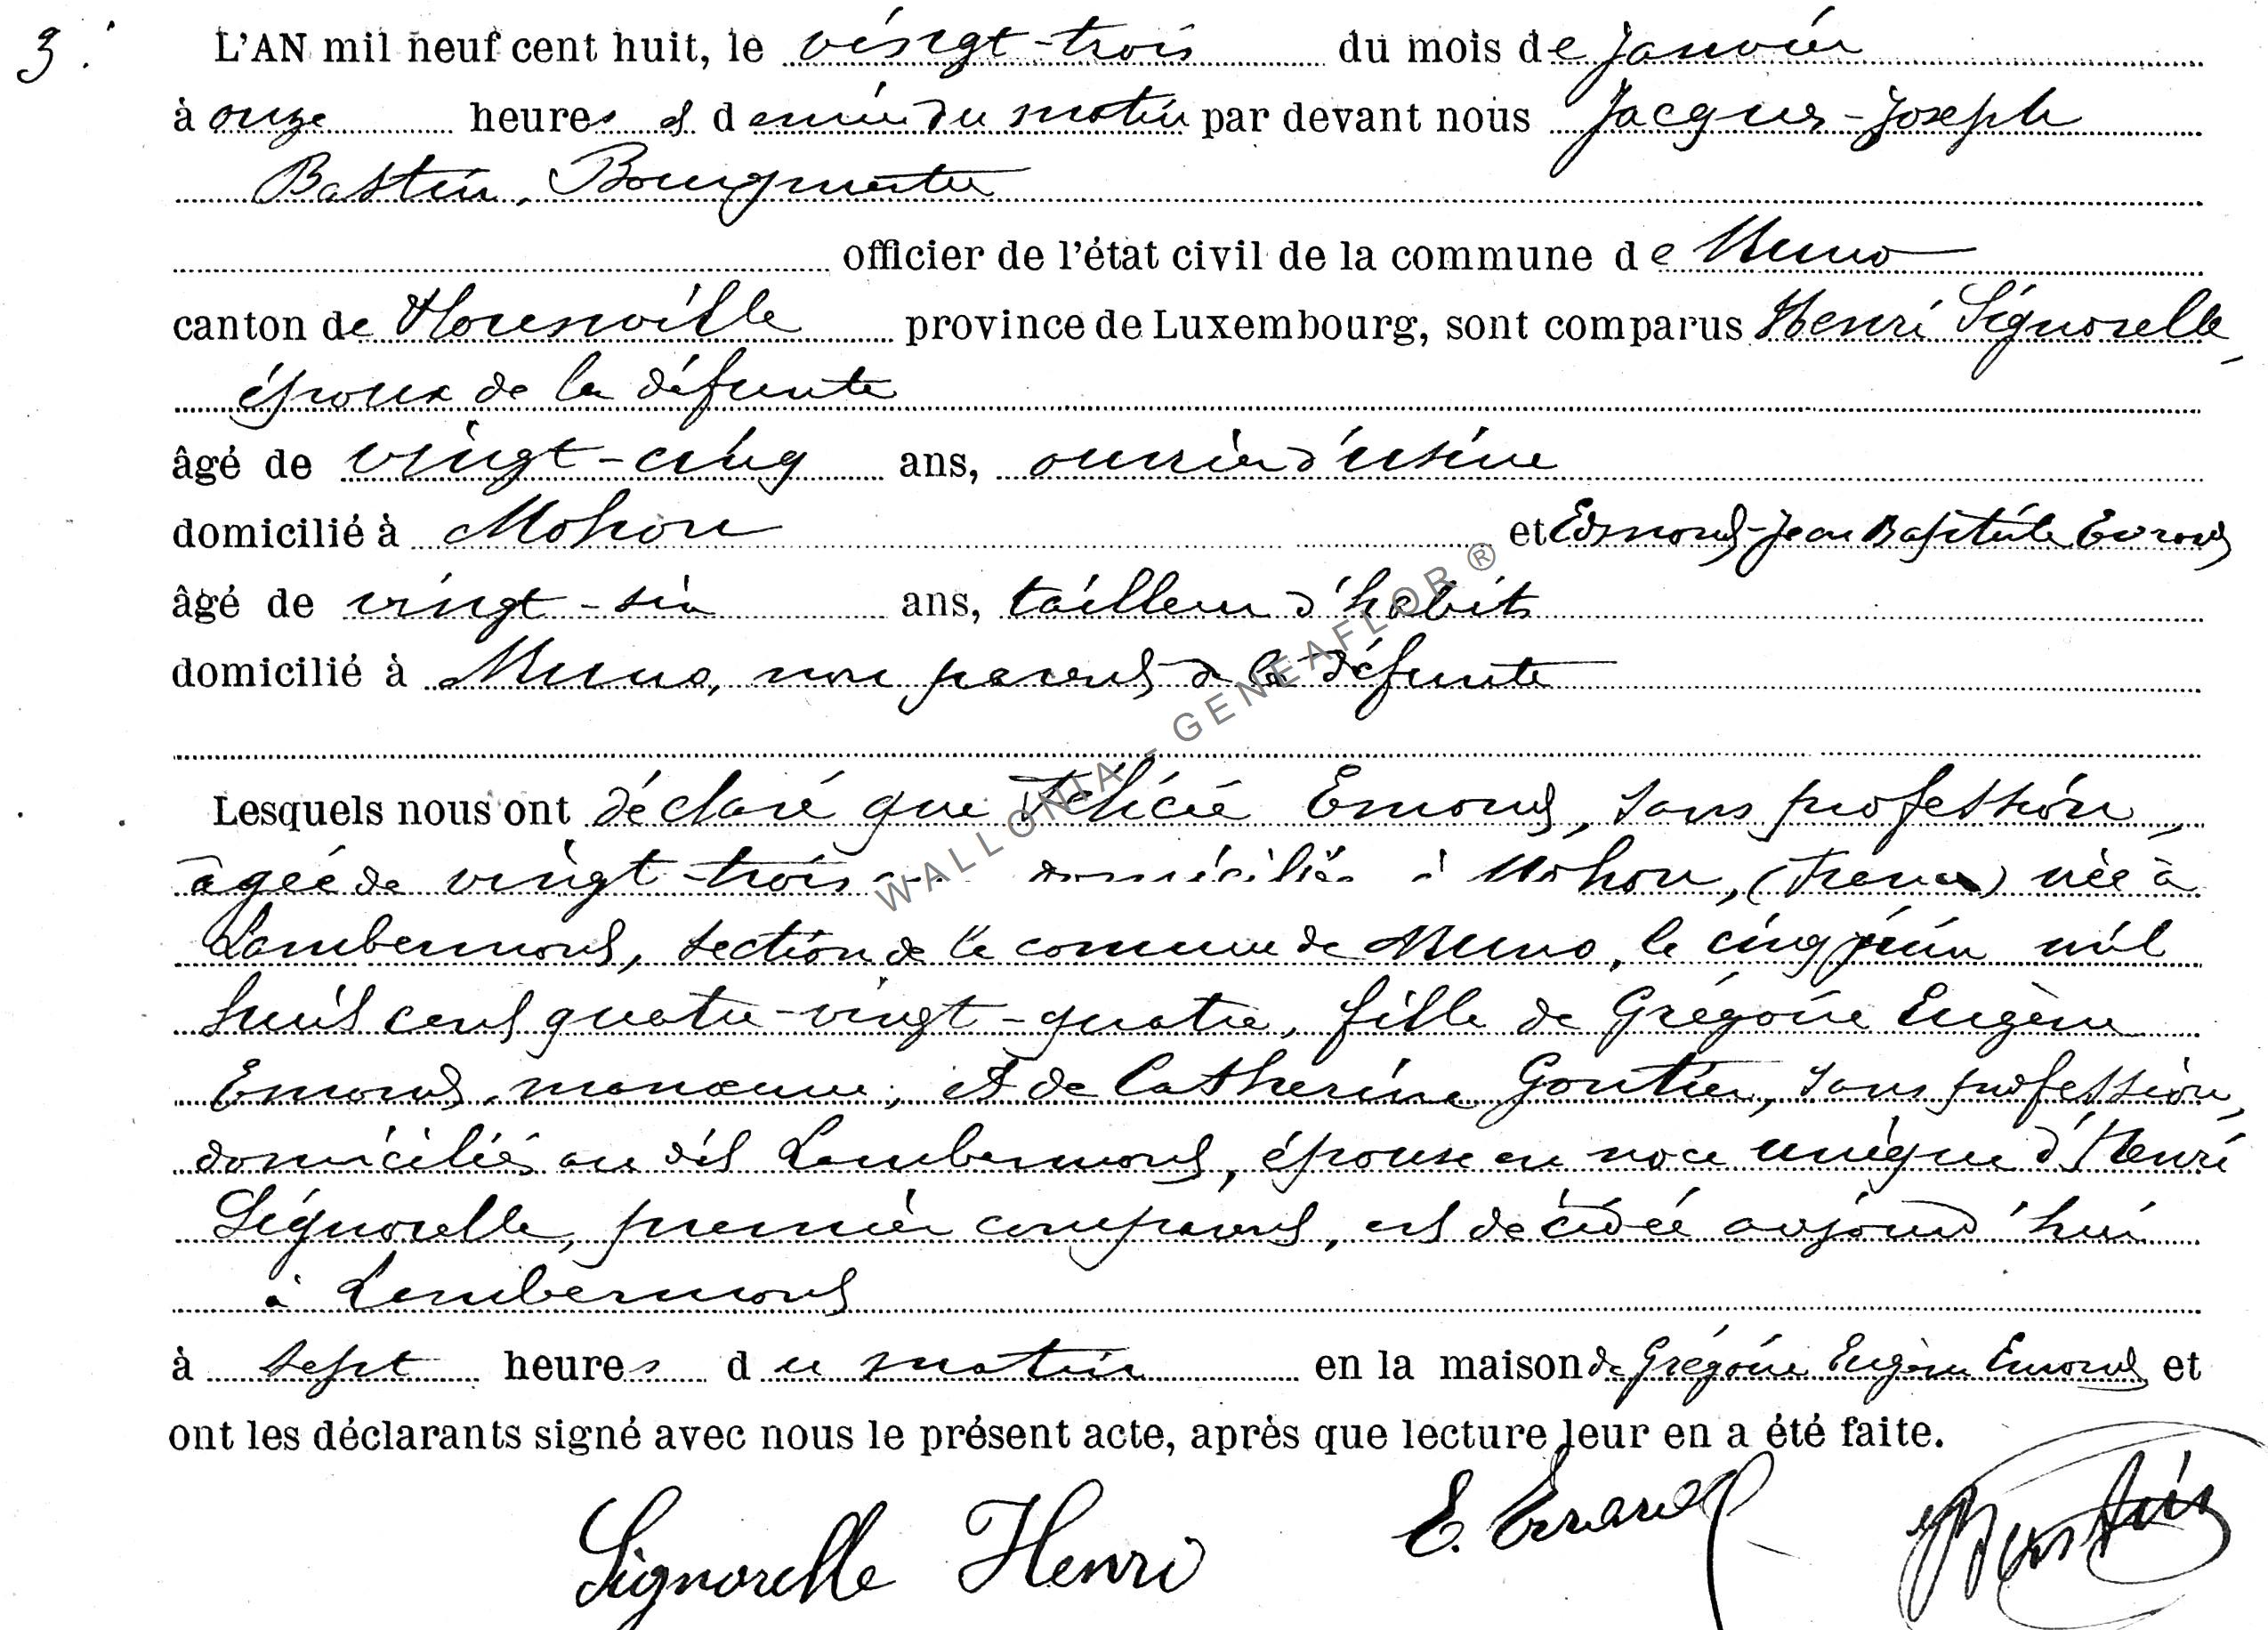 3.
L'AN mil neuf cent huit, le vingt-trois du mois de Janvier
à onze heures et demie du matin par devant nous Jacques-Joseph
Bastin, Bourgmestre
officier de l'état civil de la commune de Muno
canton de Florenville province de Luxembourg, sont comparus Henri Signorelle,
époux de la défunte
âgé de vingt-cinq ans, ouvrier d'usine
domicilié à Mohon et Edmond-Jean Baptiste Evrard
âgé de vingt-six ans, tailleur d'habits
domicilié à Muno, non parent de la défunte
Lesquels nous ont déclaré que Félicie Emond, sans profession,
âgée de vingt-trois ans domiciliée à Mohon, (France) née à
Lambermont, section de la commune de Muno, le cinq juin mil
huit cent quatre-vingt-quatre, fille de Grégoire Eugène
Emond, manœuvre, et de Catherine Gontier, sans profession,
domiciliés au dit Lambermont, épouse en noce unique d'Henri
Signorelle, premier comparant, est décédée aujourd'hui
à Lambermont
à sept heures du matin en la maison de Grégoire Eugène Emond et
ont les déclarants signé avec nous le présent acte, après que lecture leur en a été faite.
Signorelle Henri E. Evrard Bastin
WALLONIA - GENEAFLOR ®